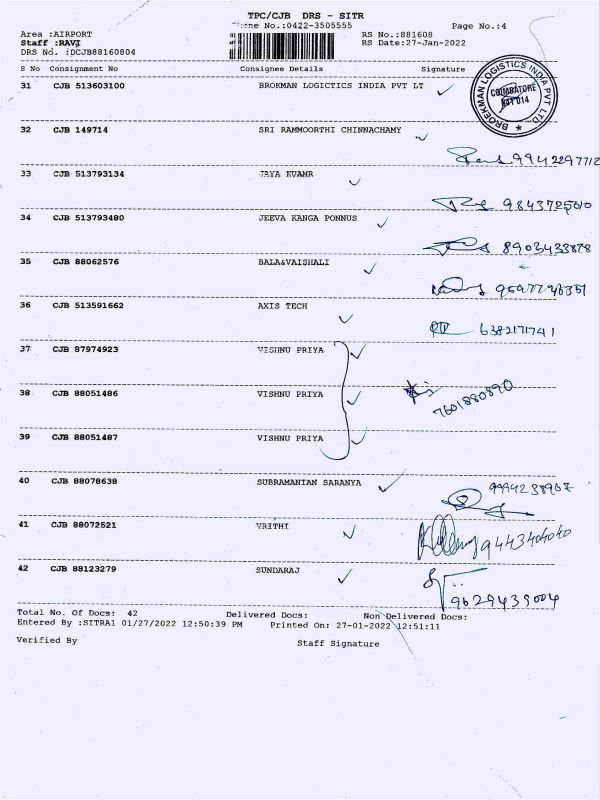 TPC/CJB DRS - SITR
Phone No.:0422-3505555
Page No.:4
Area :AIRPORT
RS No.:881608
Staff :RAVI
RS Date:27-Jan-2022
DRS No. :DCJB88160804
S No Consignment No Consignee Details Signature
31 CJB 513603100 BROKMAN LOGICTICS INDIA PVT LT
BROEKMAN LOGISTICS INDIA PVT LTD.
COIMBATORE
641 014
32 CJB 149714 SRI RAMMOORTHI CHINNACHAMY
9942297712
33 CJB 513793134 JAYA KUAMR
34 CJB 513793480 JEEVA KANGA PONNUS
8903433878
35 CJB 88062576 BALA&VAISHALI
36 CJB 513591662 AXIS TECH
6382171741
37 CJB 87974923 VISHNU PRIYA
38 CJB 88051486 VISHNU PRIYA
7601880890
39 CJB 88051487 VISHNU PRIYA
40 CJB 88078638 SUBRAMANIAN SARANYA
9994238907
41 CJB 88072521 VRITHI
42 CJB 88123279 SUNDARAJ
9629435004
Total No. Of Docs: 42 Delivered Docs: Non Delivered Docs:
Entered By :SITRA1 01/27/2022 12:50:39 PM Printed On: 27-01-2022 12:51:11
Verified By Staff Signature